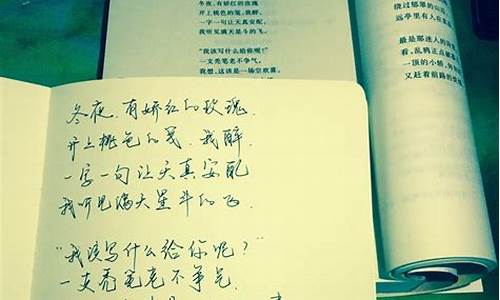 冬夜,有娇红的玫瑰
开上桃色的笺,我醉,
一字一句让天真安配
我听见满天星斗的飞.
“我该写什么给你呢?”
一支秃笔老不争气.
冬夜,有娇红的玫瑰
开上桃色的笺,我醉,
一字一句让天真安配,
我听见满天星斗的飞。
“我该写什么给你呢?”
一支秃笔老不争气,
我想,这该是一场空欢喜。
绕过郁翠的山
远亭里有人在
最是那迷人的
看,乱鸦正点
一顶的小轿,
又赶着前路的